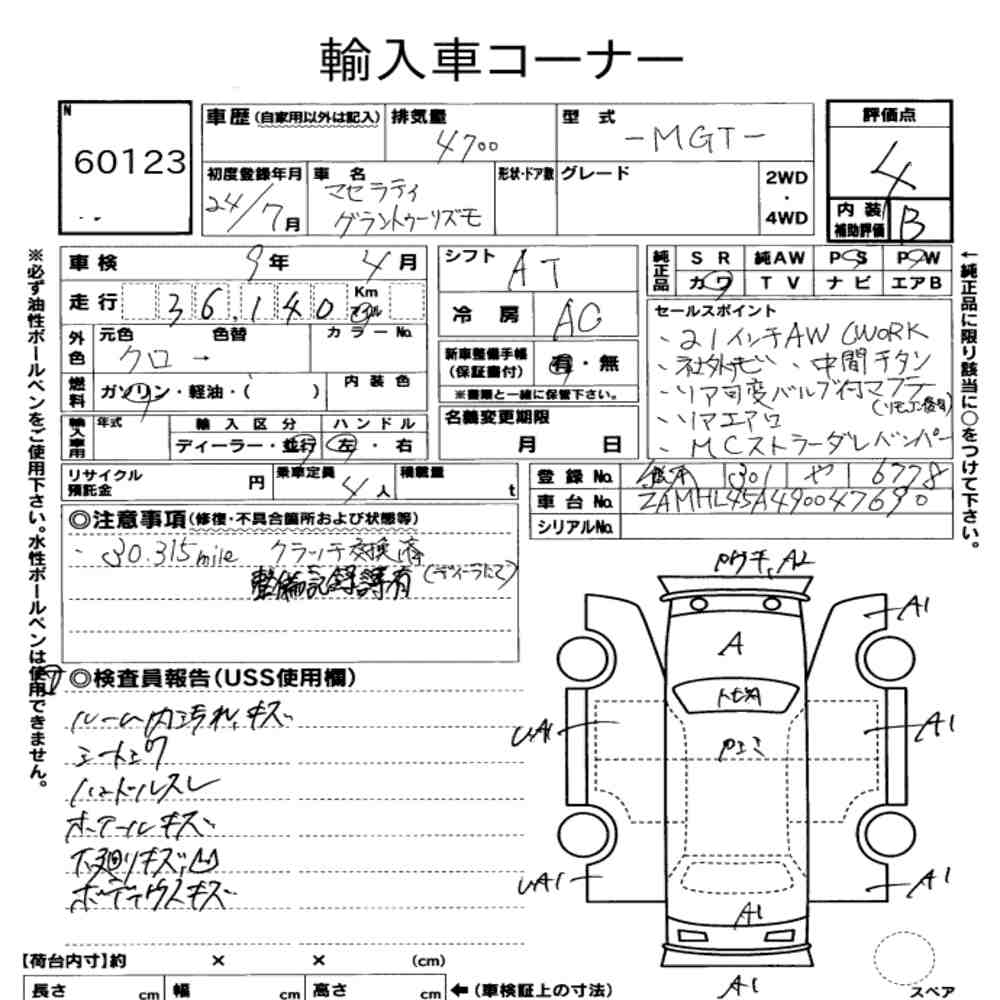 輸入車コーナー
N
60123
車歴 (自家用以外は記入)
排気量
4700
型 式
-MGT-
評価点
4
初度登録年月
24/7月
車 名
マセラティ
グラントゥーリズモ
形状・ドア数
グレード
2WD
・
4WD
内 装
補助評価
B
車 検 9年 4月
シフト AT
純正品
S R 純AW P S P W
カワ T V ナビ エアB
走 行 36,140 Km マイル
冷 房 AC
セールスポイント
・21インチAW (WORK
・社外ナビ ・中間チタン
・リア可変バルブ付マフラー
(リモコン後有)
・リアエアロ
・MCストラーダレバンパー
外色
元色 色替 カラーNo.
クロ →
新車整備手帳
(保証書付)
有・無
※書類と一緒に保管下さい。
燃料
ガソリン・軽油・( )
内 装 色
名義変更期限
月 日
輸入車用
年式
輸 入 区 分
ハ ン ド ル
ディーラー・並行
左・右
リサイクル
預託金
円
乗車定員
4人
積載量
t
登 録 No.
301 や 6778
車 台 No. ZAMHL45A490047690
シリアルNo.
◎注意事項(修復・不具合箇所および状態等)
・30.315mile クラッチ交換済
(ディーラにて)
整備記録簿有
◎検査員報告(USS使用欄)
ルーム内汚れ、キズ
シートスワ
ハンドルスレ
ホイールキズ
下廻りキズ、凹
ボディウスキズ
Pウチ、A2
A
A1
A1
トビ石
Pエミ
A1
A1
A1
A1
A1
A1
スペア
【荷台内寸】約 × × (cm)
長さ cm 幅 cm 高さ cm
←(車検証上の寸法)
※必ず油性ボールペンをご使用下さい。水性ボールペンは使用できません。
←純正品に限り該当に○をつけて下さい。